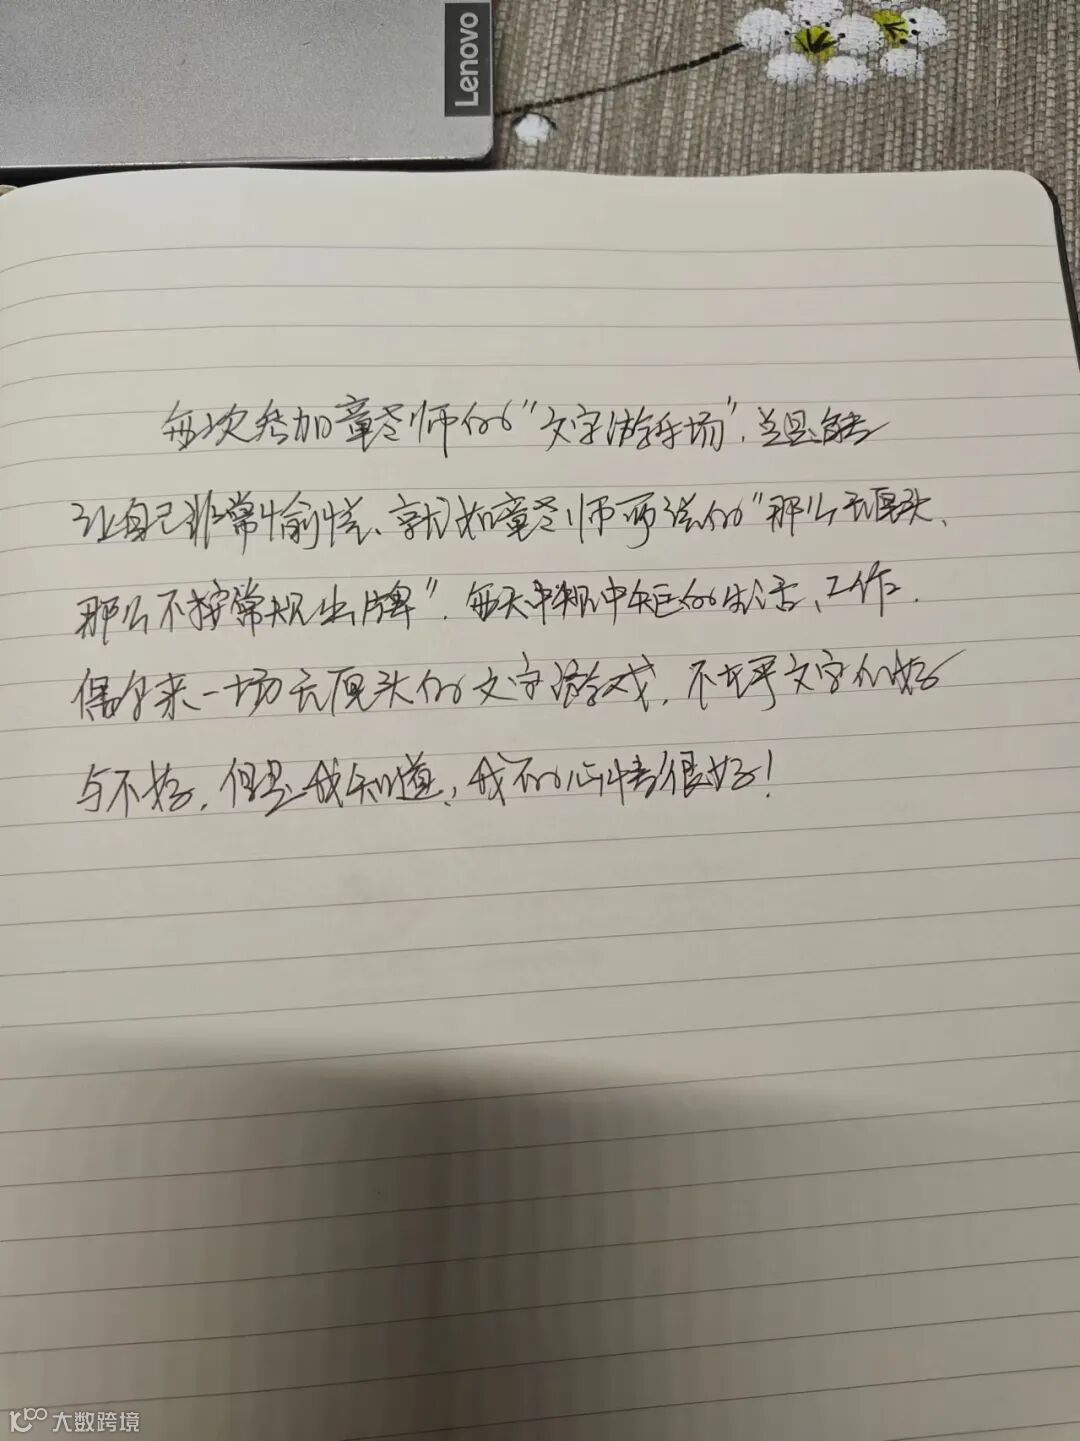 Lenovo
每次参加童老师的“文字游乐场”，总是能
让自己非常愉悦、就如童老师所说的“那么无厘头、
那么不按常规出牌”。每天中规中矩的生活、工作，
偶尔来一场无厘头的文字游戏，不在乎文字的好
与不好，但是我知道，我的心情很好！
大数跨境